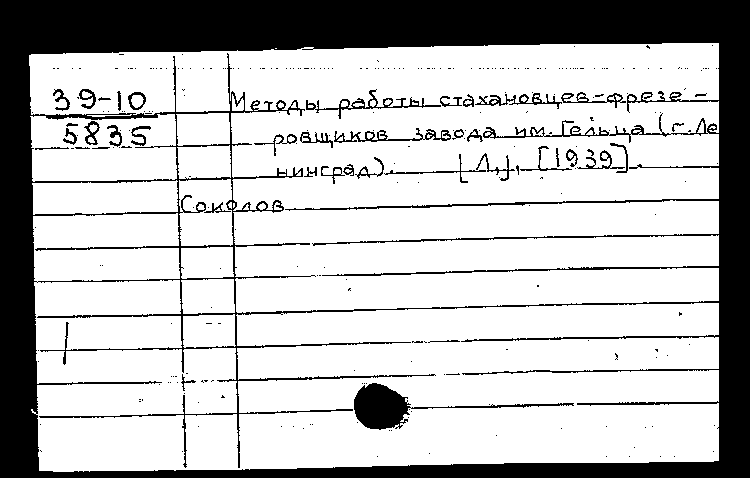 39-10
5835
Методы работы стахановцев-фрезе-
ровщиков завода им. Гельца (г. Ле
нинград). [Л.], [1939].
Соколов